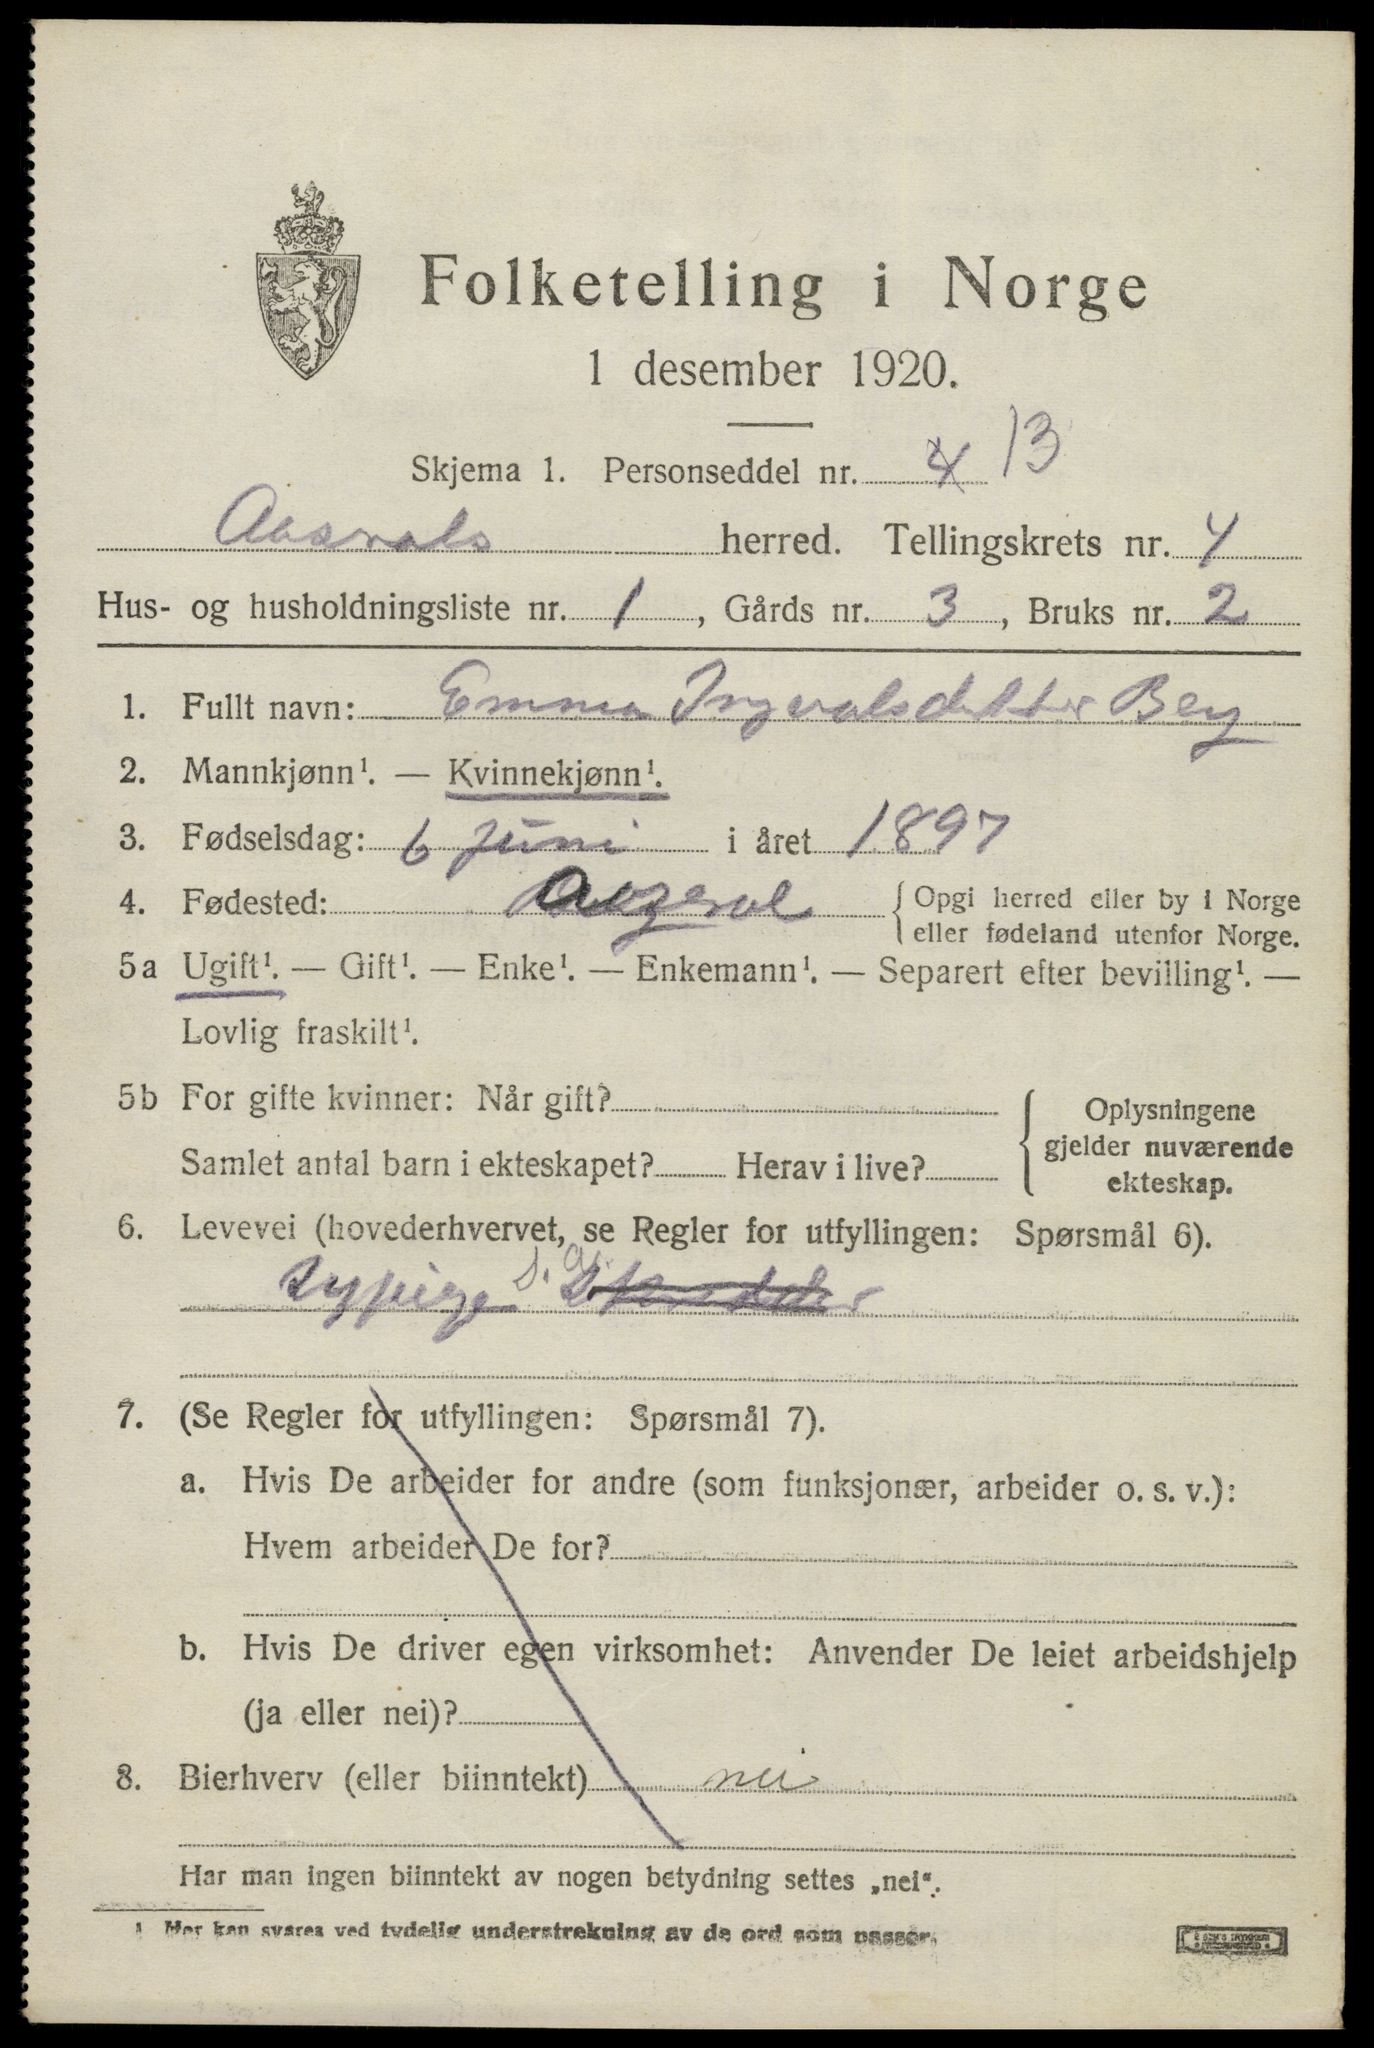 Folketelling i Norge
1 desember 1920.
Skjema 1. Personseddel nr. 4 13
Aaserals herred. Tellingskrets nr. 4
Hus- og husholdningsliste nr. 1, Gårds nr. 3, Bruks nr. 2
1. Fullt navn: Emma Ingvalsdatter Berg
2. Mannkjønn¹. — Kvinnekjønn¹.
3. Fødselsdag: 6 Juni i året 1897
4. Fødested: { Opgi herred eller by i Norge
eller fødeland utenfor Norge.
5a Ugift¹. — Gift¹. — Enke¹. — Enkemann¹. — Separert efter bevilling¹. —
Lovlig fraskilt¹.
5b For gifte kvinner: Når gift? { Oplysningene
gjelder nuværende
Samlet antal barn i ekteskapet? Herav i live?
ekteskap.
6. Levevei (hovederhvervet, se Regler for utfyllingen: Spørsmål 6).
Sypige
7. (Se Regler for utfyllingen: Spørsmål 7).
a. Hvis De arbeider for andre (som funksjonær, arbeider o. s. v.):
Hvem arbeider De for?
b. Hvis De driver egen virksomhet: Anvender De leiet arbeidshjelp
(ja eller nei)?
8. Bierhverv (eller biinntekt) nei
Har man ingen biinntekt av nogen betydning settes „nei“.
¹ Her kan svares ved tydelig understrekning av de ord som passer.